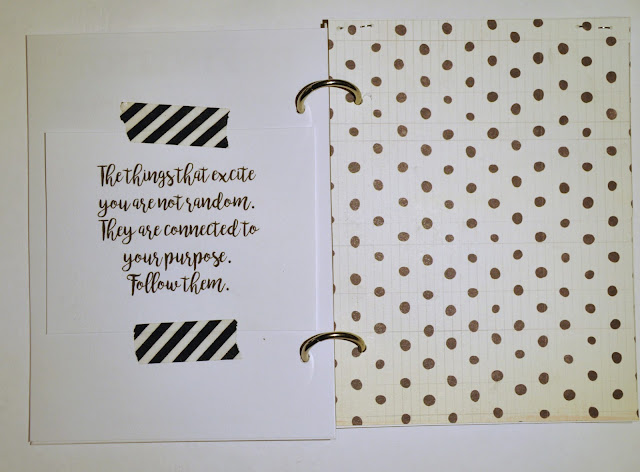 The things that excite
you are not random.
They are connected to
your purpose.
Follow them.